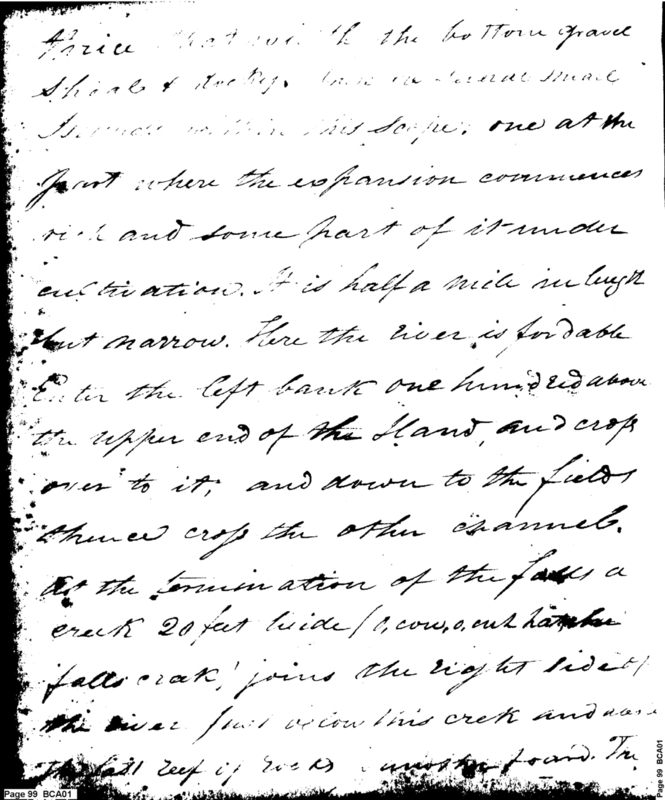 thrice that width the bottom gravel
Shoals & rocky. in several small
Islands within this scope; one at the
part where the expansion commences
rich and some part of it under
cultivation. It is half a mile in length
but narrow. Here the river is fordable
Enter the left bank one hundred above
the upper end of the Iland, and cross
over to it, and down to the fields
thence cross the other channel.
At the termination of the falls a
creek 20 feet wide (O,cow,o,cuh hatche
falls creek) joins the right side of
the river Just below this creek and above
the last reef of rocks is another foard. The
Page 99 BCA01
Page 99 BCA01